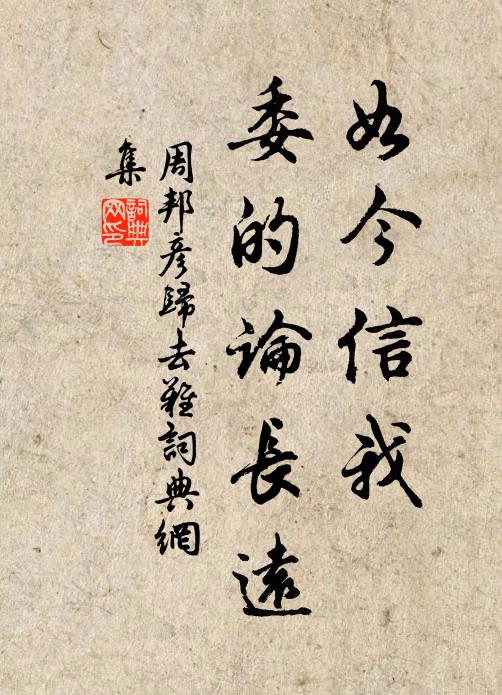 如今信我
委的論長遠
周邦彥歸去難詞典網
集
詞典
网印